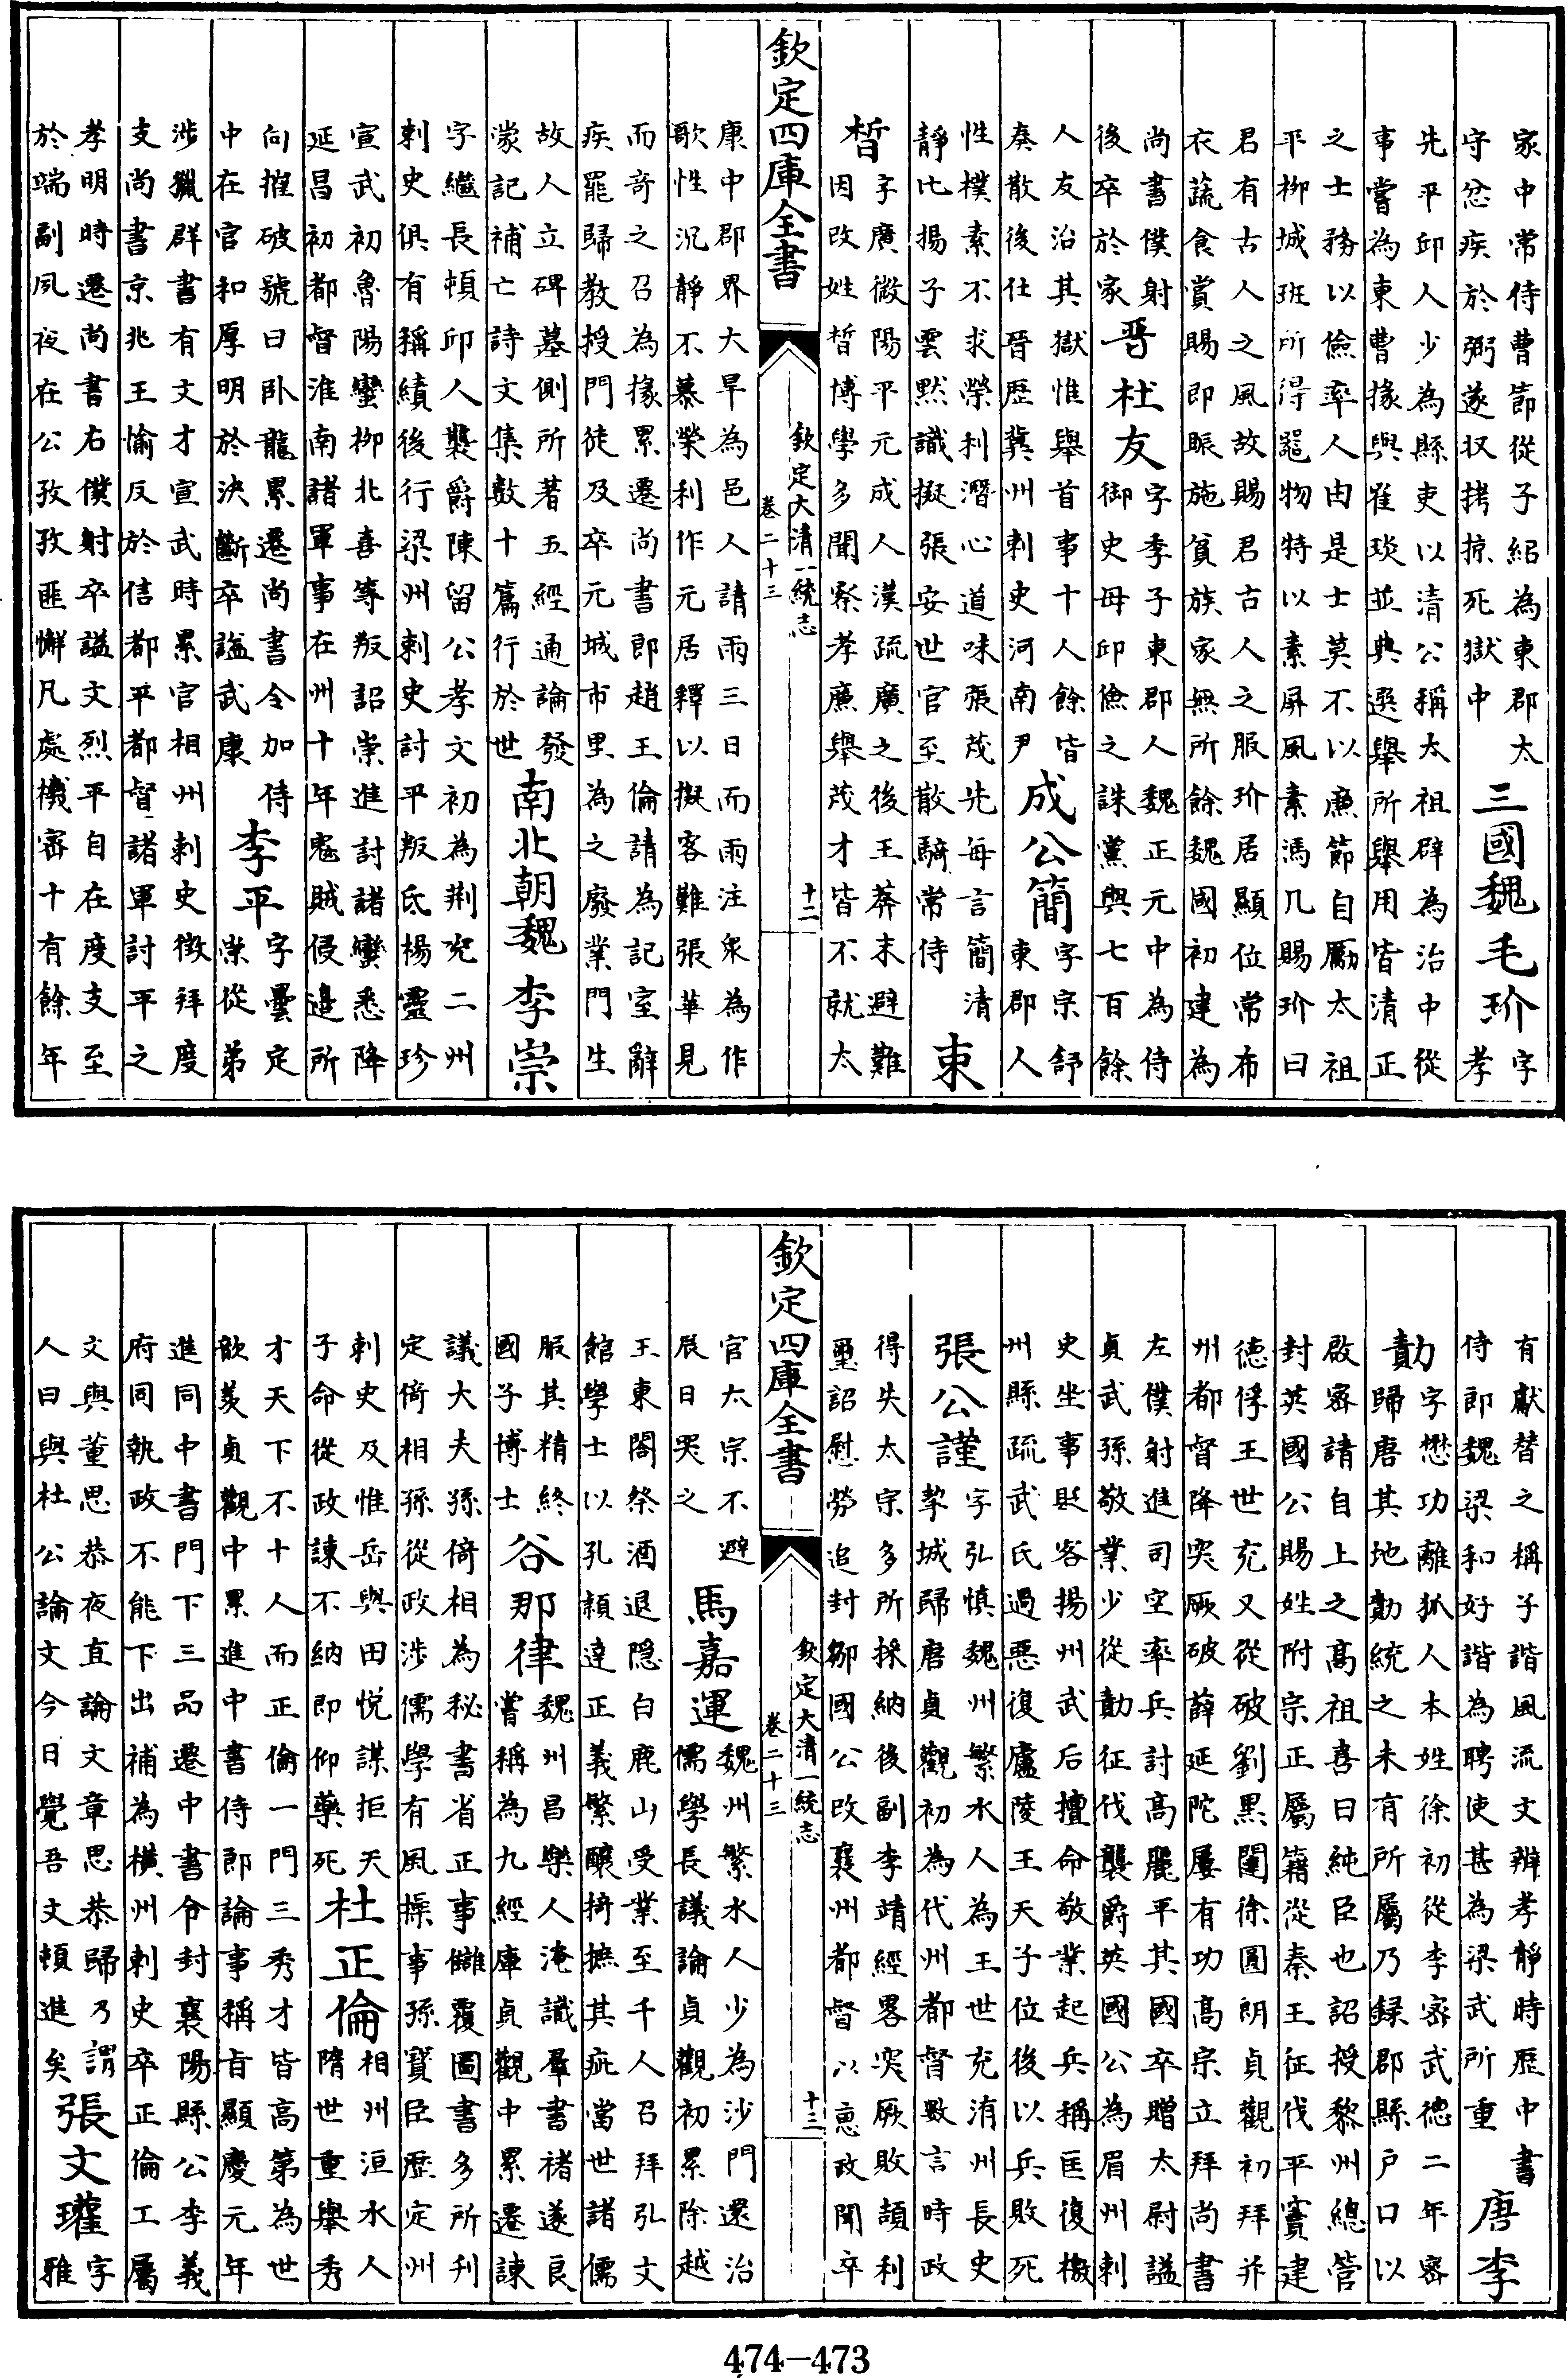 家中常侍曹節從子紹為東郡太
守忿疾於弼遂収拷掠死獄中
三國魏毛玠
字
孝
先平邱人少為縣吏以清公稱太祖辟為治中從
事嘗為東曹掾與崔琰並典選舉所舉用皆清正
之士務以儉率人由是士莫不以亷節自勵太祖
平柳城班所得噐物特以素屏風素馮几賜玠曰
君有古人之風故賜君古人之服玠居顯位常布
衣蔬食賞賜即賑施貧族家無所餘魏國初建為
尚書僕射
後卒於家
晉杜友
字季子東郡人魏正元中為侍
御史母邱儉之誅黨與七百餘
人友治其獄惟舉首事十人餘皆
奏散後仕晉歴冀州刺史河南尹
成公簡
字宗舒
東郡人
性樸素不求榮利潛心道味張茂先每言簡清
靜比揚子雲默識擬張安世官至散騎常侍
束
晳
字廣微陽平元成人漢疏廣之後王莽末避難
因改姓晳博學多聞察孝亷舉茂才皆不就太
欽定四庫全書
欽定大清一統志
卷二十三
十二
康中郡界大旱為邑人請雨三日而雨注衆為作
歌性沉靜不慕榮利作元居釋以擬客難張華見
而竒之召為掾累遷尚書郎趙王倫請為記室辭
疾罷歸教授門徒及卒元城市里為之廢業門生
故人立碑墓側所著五經通論發
蒙記補亡詩文集數十篇行於世
南北朝魏李崇
字繼長頓邱人襲爵陳留公孝文初為荆兖二州
刺史俱有稱績後行梁州刺史討平叛氐楊靈珍
宣武初魯陽蠻柳北喜等叛詔崇進討諸蠻悉降
延昌初都督淮南諸軍事在州十年寇賊侵邉所
向摧破號曰卧龍累遷尚書令加侍
中在官和厚明於決斷卒諡武康
李平
字曇定
崇從弟
涉獵群書有文才宣武時累官相州刺史徴拜度
支尚書京兆王愉反於信都平都督諸軍討平之
孝明時遷尚書右僕射卒諡文烈平自在度支至
於端副夙夜在公孜孜匪懈凡處機宻十有餘年
有獻替之稱子諧風流文辨孝靜時歴中書
侍郎魏梁和好諧為聘使甚為梁武所重
唐李
勣
字懋功離狐人本姓徐初從李宻武徳二年宻
歸唐其地勣統之未有所屬乃録郡縣户口以
啟宻請自上之髙祖喜曰純臣也詔授黎州總管
封英國公賜姓附宗正屬籍從秦王征伐平竇建
德俘王世充又從破劉黒闥徐圓朗貞觀初拜并
州都督降突厥破薛延陀屢有功髙宗立拜尚書
左僕射進司空率兵討高麗平其國卒贈太尉諡
貞武孫敬業少從勣征伐襲爵英國公為眉州刺
史坐事貶客揚州武后擅命敬業起兵稱匡復檄
州縣疏武氏過惡復廬陵王天子位後以兵敗死
張公謹
字弘慎魏州繁水人為王世充洧州長史
挈城歸唐貞觀初為代州都督數言時政
得失太宗多所採納後副李靖經畧突厥敗頡利
璽詔慰勞追封鄒國公改襄州都督以惠政聞卒
欽定四庫全書
欽定大清一統志
卷二十三
十三
官太宗不避
辰日哭之
馬嘉運
魏州繁水人少為沙門還治
儒學長議論貞觀初累除越
王東閣祭酒退隱白鹿山受業至千人召拜弘文
館學士以孔穎達正義繁釀掎摭其疵當世諸儒
服其精終
國子博士
谷那律
魏州昌樂人淹識羣書褚遂良
嘗稱為九經庫貞觀中累遷諫
議大夫孫倚相為秘書省正事讎覆圖書多所刋
定倚相孫從政涉儒學有風操事孫寶臣歴定州
刺史及惟岳與田悦謀拒天
子命從政諫不納即仰藥死
杜正倫
相州洹水人
隋世重舉秀
才天下不十人而正倫一門三秀才皆高第為世
歆羨貞觀中累進中書侍郎論事稱㫖顯慶元年
進同中書門下三品遷中書令封襄陽縣公李義
府同執政不能下出補為横州刺史卒正倫工屬
文與董思恭夜直論文章思恭歸乃謂
人曰與杜公論文今日覺吾文頓進矣
張文瓘
字
雅
474—473